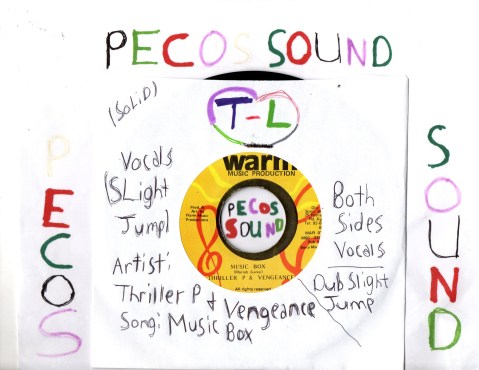 PECOS SOUND
(SOLID)
T-L
PECOS
SOUND
Vocals
(SLight
Jump)
Artist:
Thriller P & Vengeance
Song: Music Box
warm
MUSIC PRODUCTION
PECOS
SOUND
MUSIC BOX
THRILLER P & VENGEANCE
All rights reserved
Both
Sides
Vocals
Dub Slight
Jump